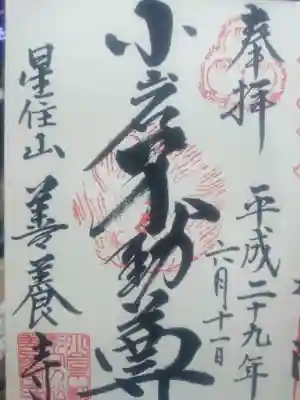 奉拝
平成二十九年
六月十一日
小岩不動尊
星住山
善養寺